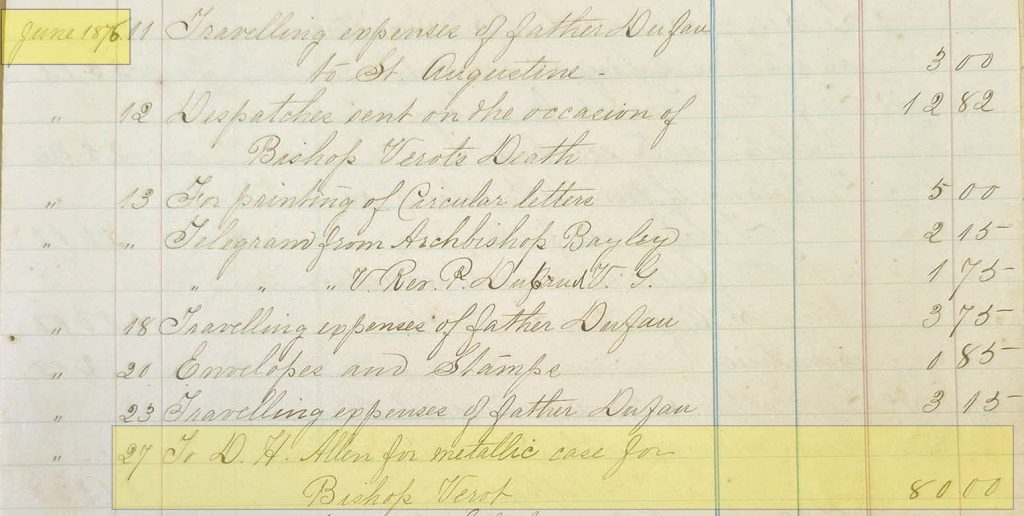 June 1876 11 Travelling expenses of father Dufau
to St. Augustine - 3 00
" 12 Despatches sent on the occasion of 12 82
Bishop Verots Death
" 13 For painting of Circular letters 5 00
" " Telegram from Archbishop Bayley 2 15
" " " V. Rev. P. V. G. 1 75
" 18 Travelling expenses of father Dufau 3 75
" 20 Envelopes and Stamps 0 85
" 23 Travelling expenses of father Dufau 3 15
" 27 To D. H. Allen for metallic case for
Bishop Verot 80 00